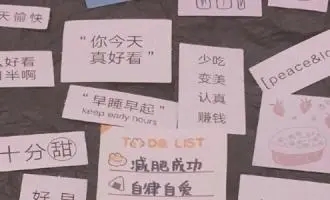 天愉快
WIN
"你今天
真好看"
好看
半啊
少吃
变美
认真
赚钱
[peace&lo
"早睡早起"
keep eady hours
十分甜
TO DO LIST
减肥成功
自律自爱
好早